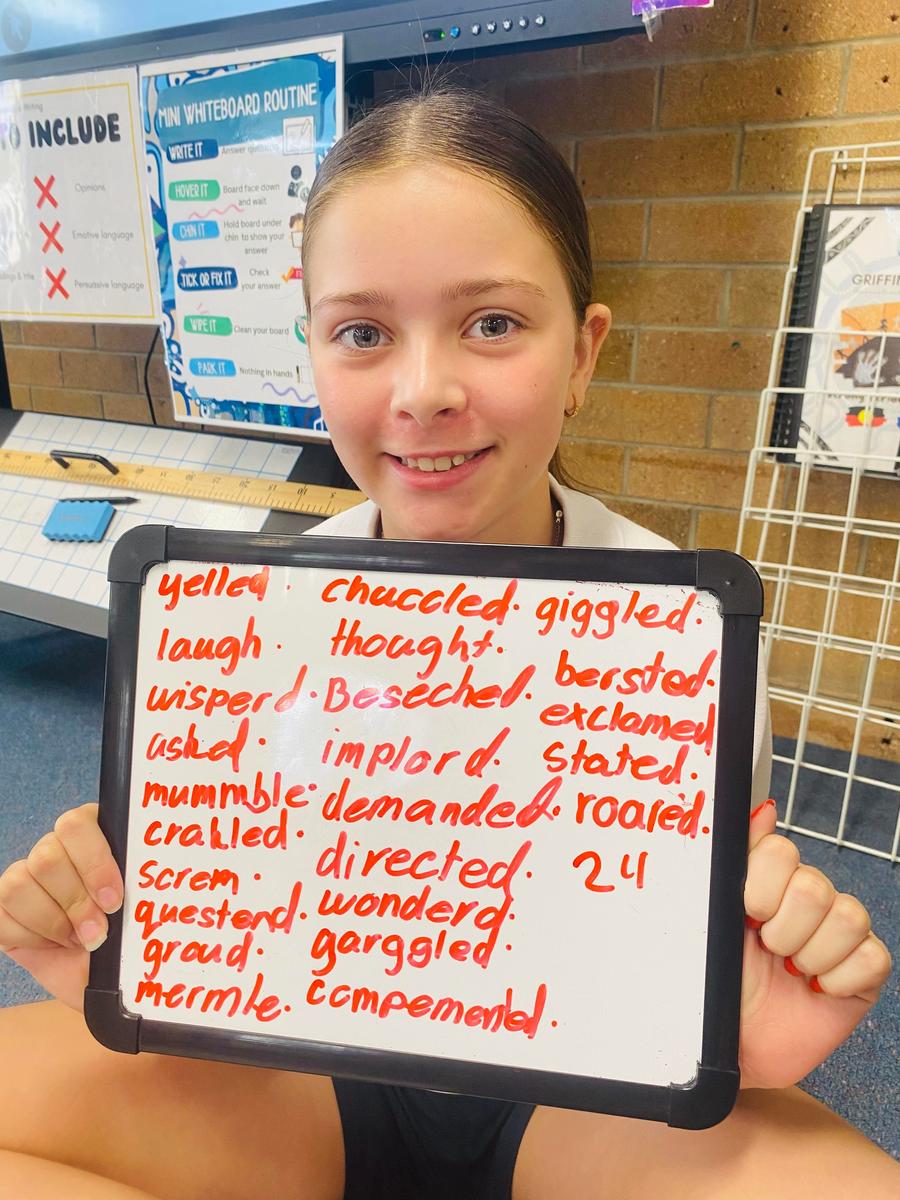 Writing
TO INCLUDE
Opinions
Emotive language
Persuasive language
MINI WHITEBOARD ROUTINE
WRITE IT
HOVER IT Board face down
and wait
CHIN IT Hold board under
chin to show your
answer
TICK OR FIX IT Check
your answer
WIPE IT Clean your board
PARK IT Nothing in hands
GRIFFIN
yelled.
laugh.
wisperd.
asked.
mummble.
crakled.
screm.
questend.
groud.
mermle.
chuccled.
thought.
Beseched.
implord.
demanded.
directed.
wonderd.
garggled.
compemented.
giggled.
bersted.
exclamed
stated.
roared.
24